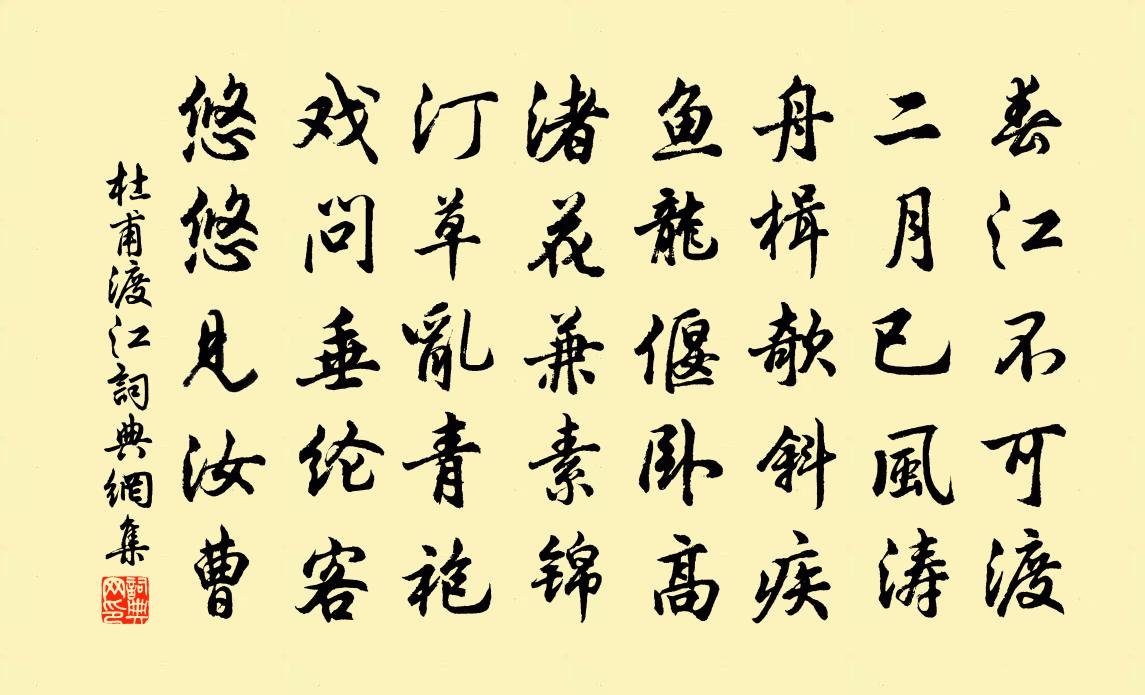 春江不可渡
二月已風涛
舟楫欹斜疾
鱼龍偃卧高
渚花兼素锦
汀草亂青袍
戏问垂纶客
悠悠見汝曹
杜甫渡江詞典網集
詞典網印